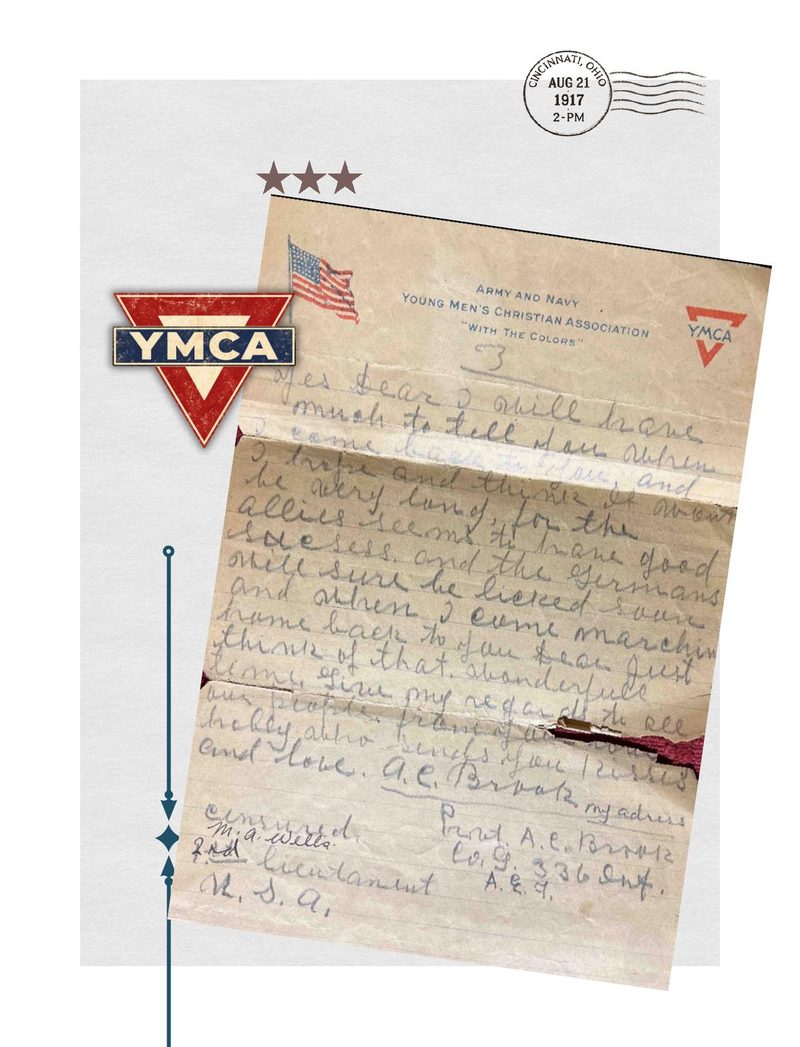 CINCINNATI, OHIO
AUG 21
1917
2-PM
ARMY AND NAVY
YOUNG MEN'S CHRISTIAN ASSOCIATION
"WITH THE COLORS"
YMCA
YMCA
3
Yes Dear I will have
much to tell you when
I come back to you, and
I hope and think it wont
be very long, for the
allies seems to have good
sucsess, and the Germans
will sure be licked soon
and when I come marchin
home back to you Dear Just
think of that. Wonderfull
time, Give my regards to all
our people. from your
hubby who sends you kisses
and love. A.C. Brook
my adress
Privt. A.C. Brook
Co. G. 336 Inf.
A.E.F.
censured.
M. A. Wells.
2nd lieutanent
U.S.A.